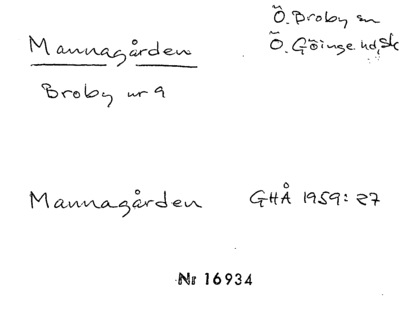 Mannagården
Ö. Broby sn
Ö. Göinge hd, Sk
Broby nr 9
Mannagården
GHÅ 1959: 27
Nr 16934